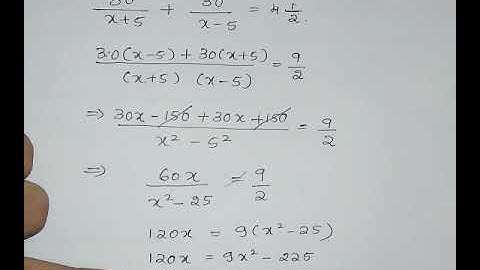 30/(x+5) + 30/(x-5) = 4 1/2.
(30(x-5) + 30(x+5))/((x+5) (x-5)) = 9/2
⇒ (30x - 150 + 30x + 150)/(x² - 5²) = 9/2
⇒ 60x/(x² - 25) = 9/2
120x = 9(x² - 25)
120x = 9x² - 225